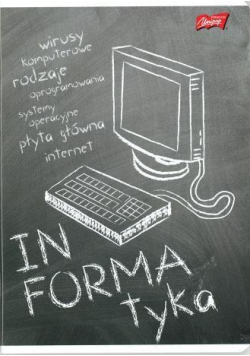 Unipap
wirusy
komputerowe
rodzaje
oprogramowania
systemy
operacyjne
płyta główna
internet
IN
FORMA
tyka